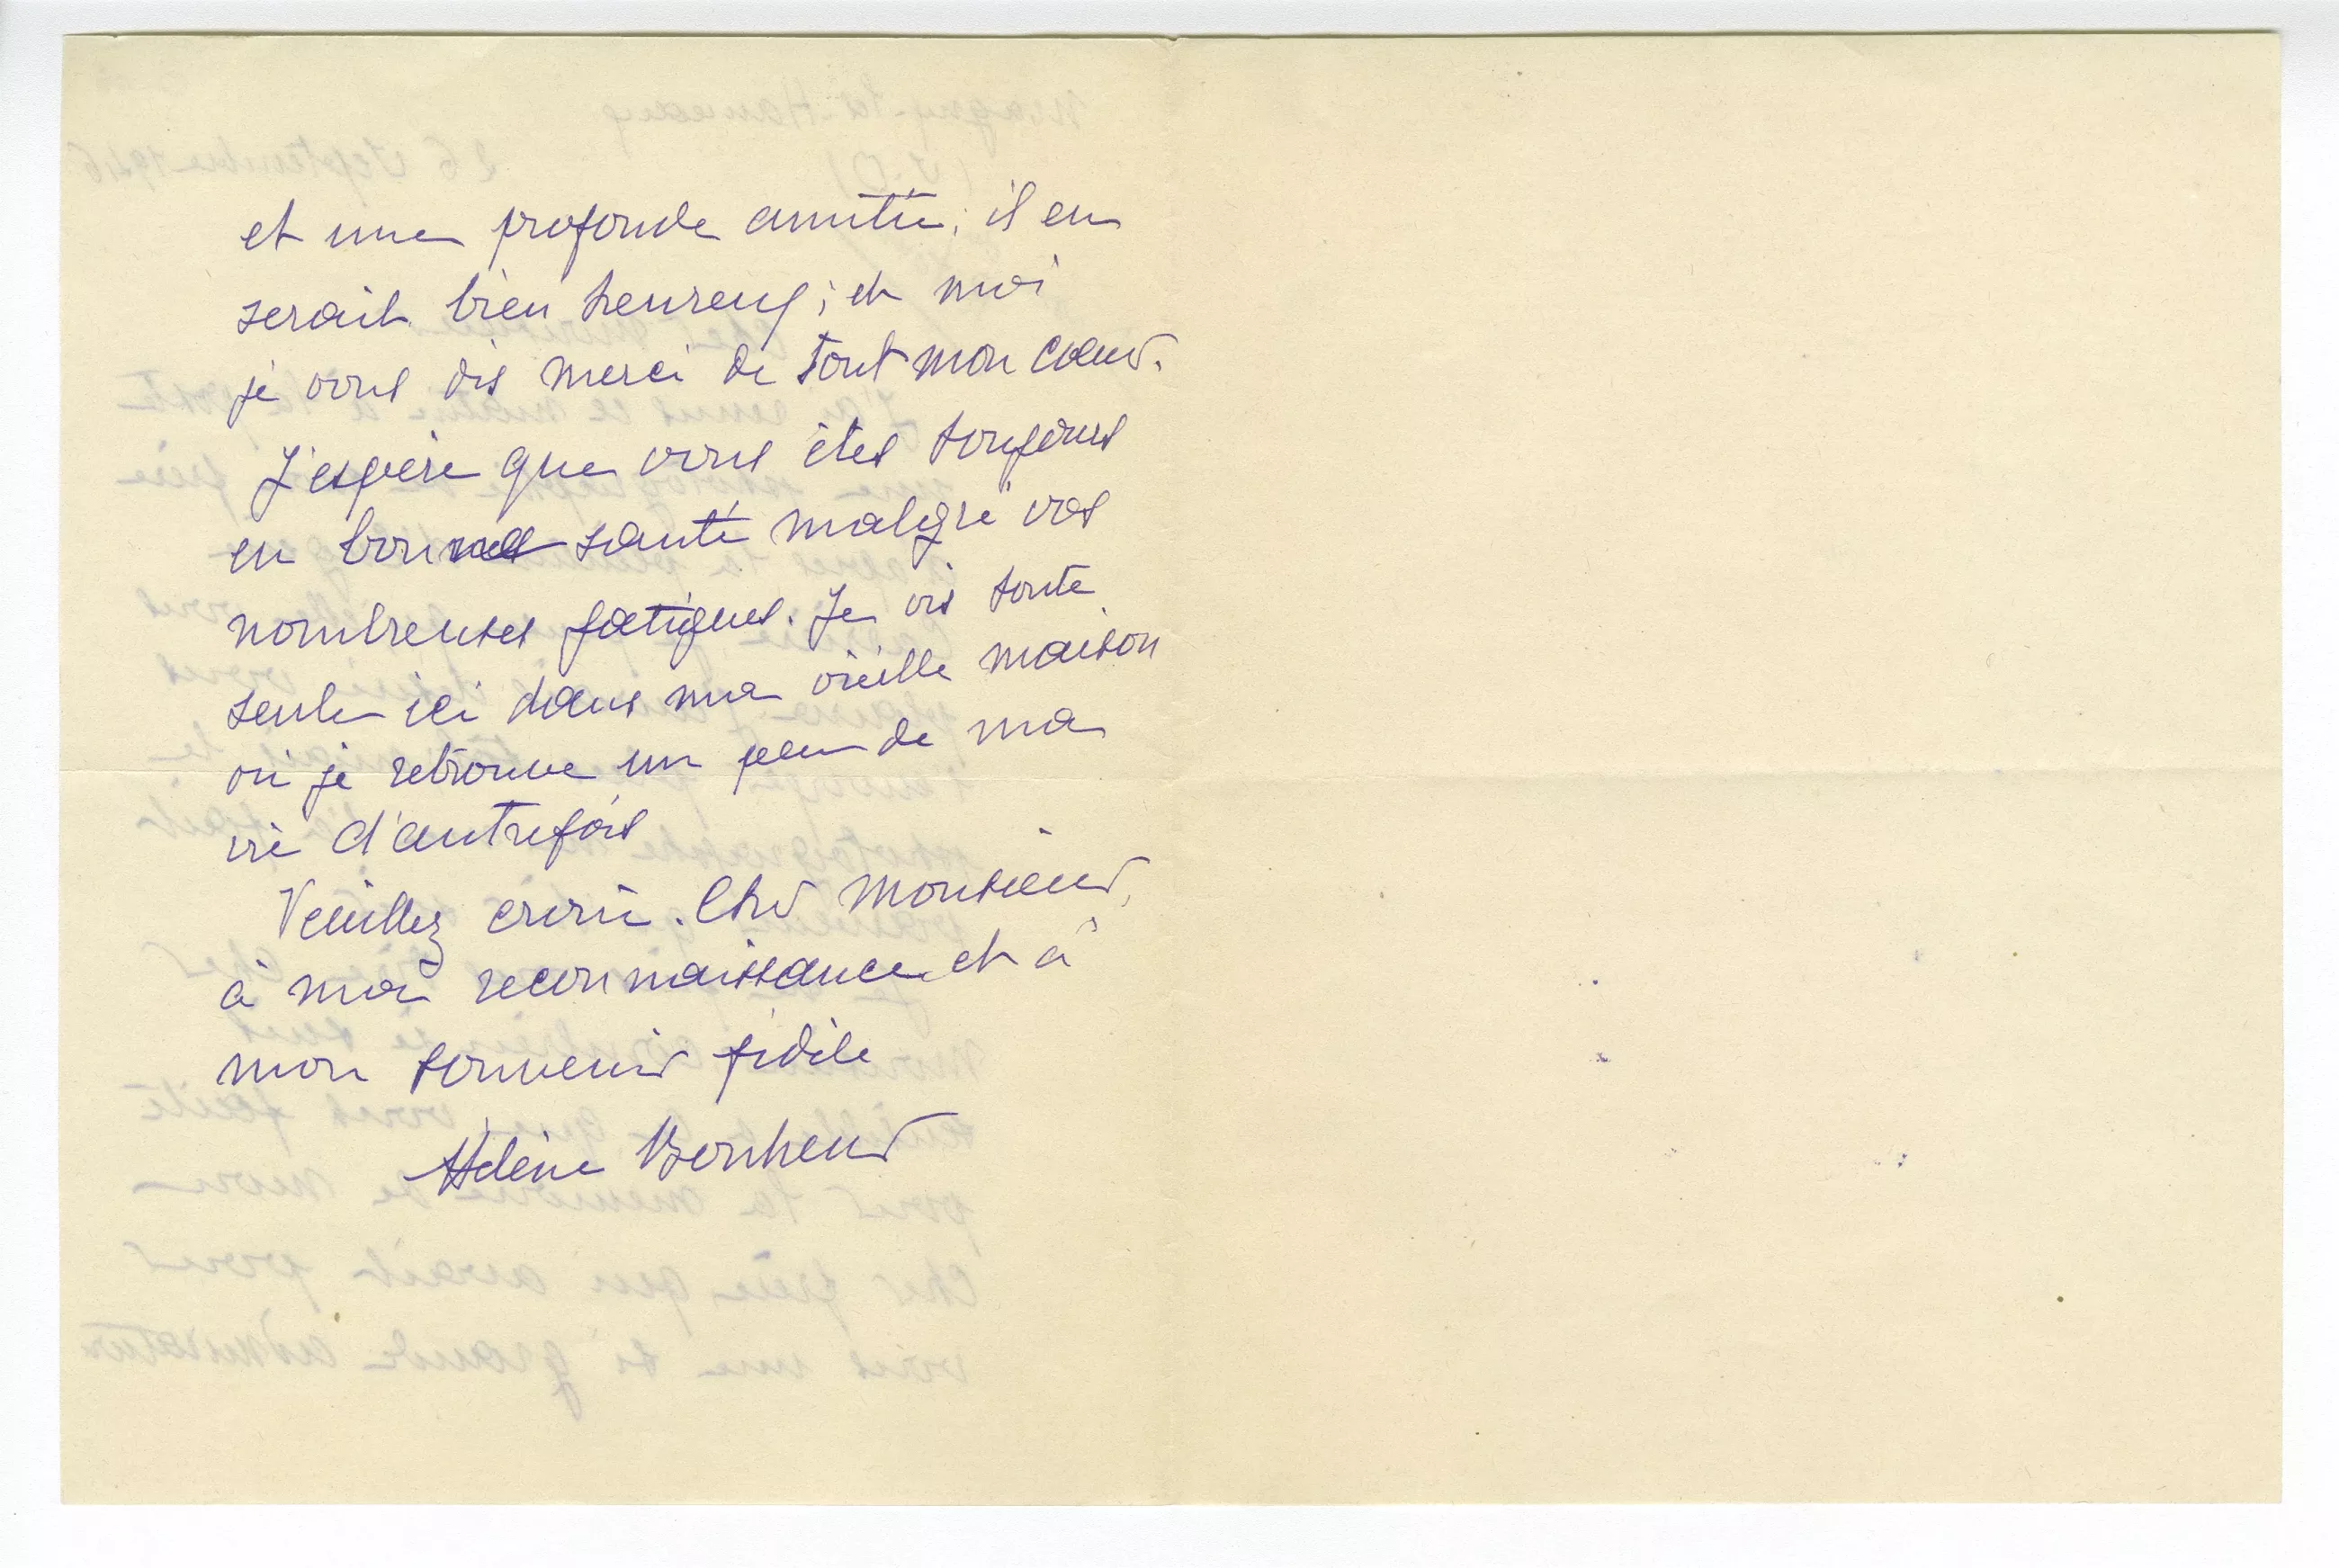 et une profonde amitié, il en
serait bien heureux ; et moi
je vous dis merci de tout mon cœur.
J'espère que vous êtes toujours
en bonne santé malgré vos
nombreuses fatigues. Je vis toute
seule ici dans ma vieille maison
où je retrouve un peu de ma
vie d'autrefois
Veuillez croire. Cher Monsieur,
à ma reconnaissance et à
mon souvenir fidèle
Hélène Bonheur